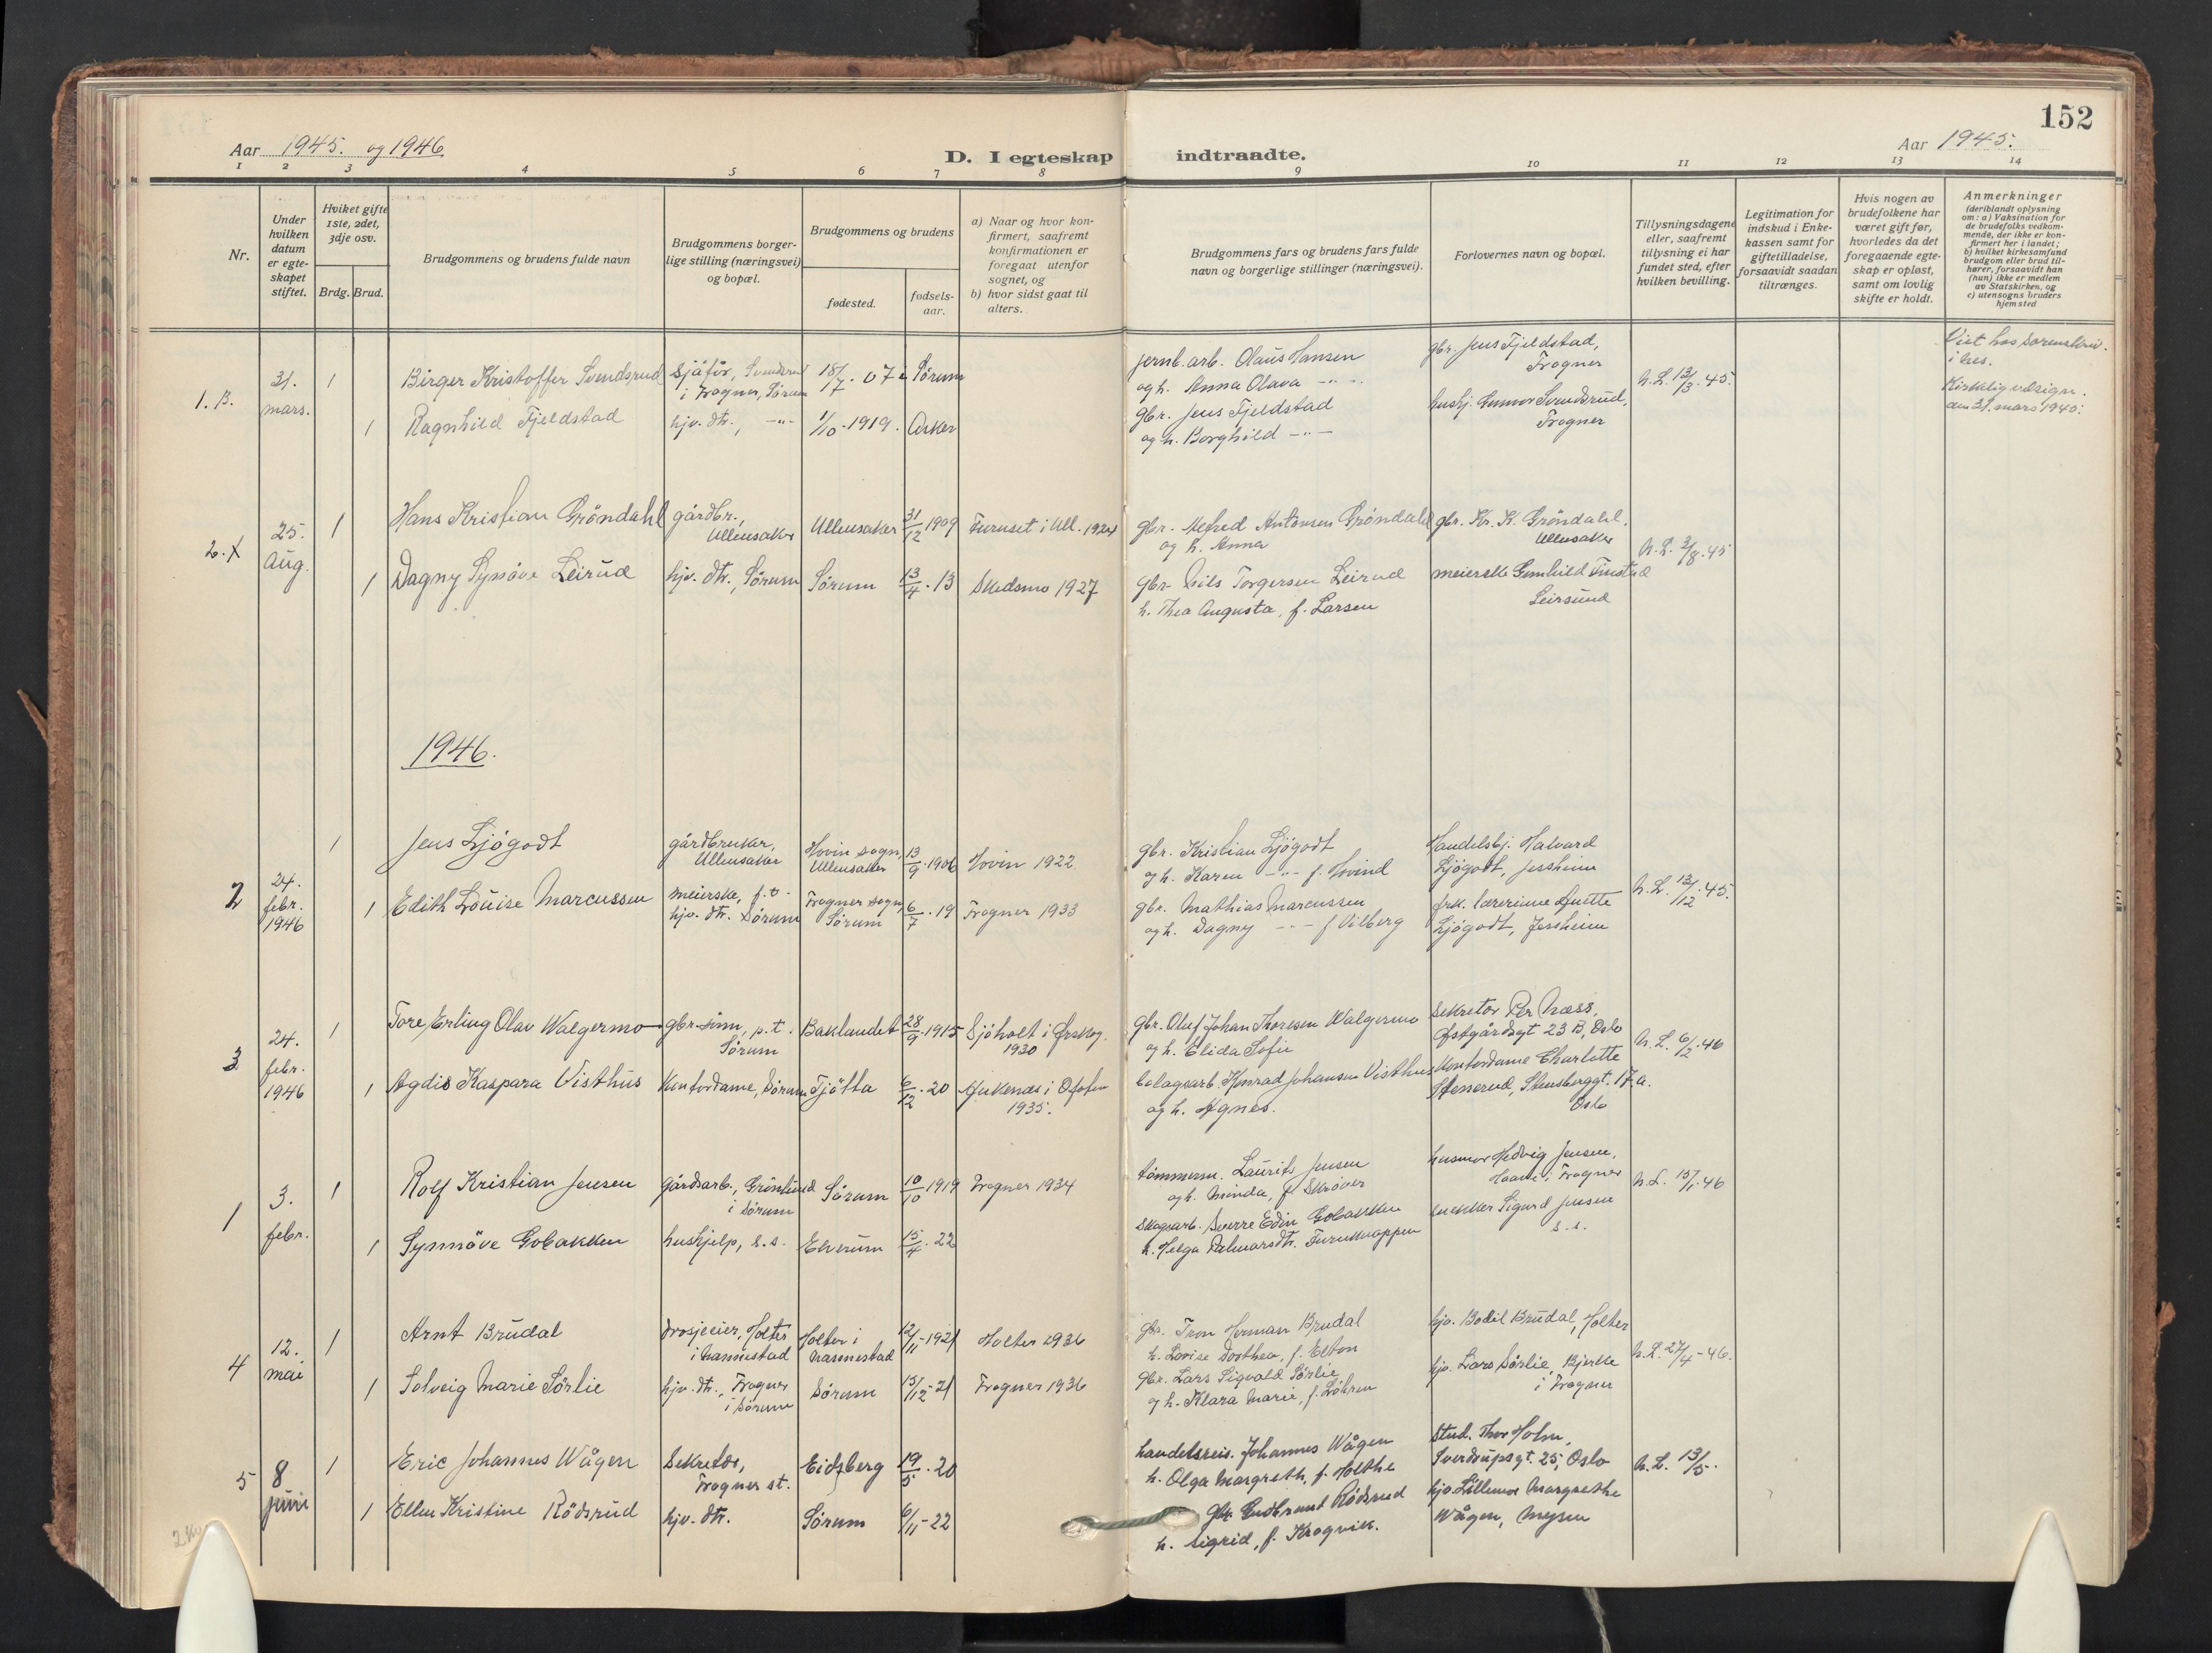 152
Aar 1945. og 1946
D. I egteskap indtraadte.
Aar 1945.
1 2 3 4 5 6 7 8 9 10 11 12 13 14
Nr.
Under hvilken datum er egte- skapet stiftet.
Hviket gifte 1ste, 2det, 3dje osv.
Brdg. Brud.
Brudgommens og brudens fulde navn
Brudgommens borger- lige stilling (næringsvei) og bopæl.
Brudgommens og brudens
fødested.
fødsels- aar.
a) Naar og hvor kon- firmert, saafremt konfirmationen er foregaat utenfor sognet, og
b) hvor sidst gaat til alters.
Brudgommens fars og brudens fars fulde navn og borgerlige stillinger (næringsvei).
Forlovernes navn og bopæl.
Tillysningsdagene eller, saafremt tillysning ei har fundet sted, efter hvilken bevilling.
Legitimation for indskud i Enke- kassen samt for giftetilladelse, forsaavidt saadan tiltrænges.
Hvis nogen av brudefolkene har været gift før, hvorledes da det foregaaende egte- skap er opløst, samt om lovlig skifte er holdt.
Anmerkninger (deriblandt oplysning om: a) Vaksination for de brudefolks vedkom- mende, der ikke er kon- firmert her i landet; b) hvilket kirkesamfund brudgom eller brud til- hører, forsaavidt han (hun) ikke er medlem av Statskirken, og c) utensogns bruders hjemsted
1. B. 31. mars. 1
Birger Kristoffer Svendsrud
sjåfør, Svendsrud i Frogner, Sørum
18/7. 07
Sørum
jernb. arb. Olaus Hansen
og h. Anna Olava -"-
gbr. Jens Fjeldstad, Frogner
N.L. 12/3. 45.
Viet hos sorenskriv. i hes.
Kirkelig velsign. den 31. mars 1945.
1
Ragnhild Fjeldstad
hjv. dtr., -"-
1/10. 1919.
Asker
gbr. Jens Fjeldstad
og h. Borghild -"-
hushj. Gunvor Svendsrud, Frogner
2. X 25. Aug. 1
Hans Kristian Gröndahl
gårdbr., Ullensaker
Ullensaker
31/12 1909
Furuset i Ull. 1924
gbr. Alfred Antonsen Gröndahl
og h. Anna
gbr. Kr. K. Gröndahl, Ullensaker
N.L. 3/8. 45
1
Dagny Synöve Leirud
hjv. dtr., Sørum
Sørum
13/4. 13
Skedsmo 1927
gbr. Nils Torgersen Leirud
h. Thea Augusta, f. Larsen
meierske Gunhild Finstad
Leirsund
1946.
2 24. febr. 1946 1
Jens Ljögodt
gårdbruker, Ullensaker
Hovin sogn, Ullensaker
13/9. 1906
Hovin 1922
gbr. Kristian Ljögodt
og h. Karen -"- f. Hovind
Handelsbj. Halvard Ljögodt, Jessheim
N.L. 13/12. 45.
1
Edith Louise Marcussen
meierske, f.t. hjv. dtr. Sørum
Frogner sogn, Sørum
6/7. 19
Frogner 1933
gbr. Mathias Marcussen
og h. Dagny -"- f. Vilberg
frk. lærerinne Anette Ljögodt, Jessheim
3 24. febr. 1946 1
Tore Erling Olav Walgermo
gbr.-sønn, p.t. Sørum
Baklandet
28/9. 1915
Sjöholt i Ørskog. 1930
gbr. Oluf Johan Thoresen Walgermo
og h. Elida Sofie
sekretær Per Næss, Østgårdsgt 23 B, Oslo
N.L. 6/2. 46
1
Agdis Kaspara Visthus
Kontordame, Sørum
Tjötta
6/12. 20
Ankenes i Ofoten 1935.
bolagsarb. Konrad Johansen Visthus
og h. Agnes.
Kontordame Charlotte Stenerud, Stensberggt. 17 a. Oslo
1 3. febr. 1
Rolf Kristian Jensen
gårdsarb., Grönlund i Sørum
Sørum
10/10 1919
Frogner 1934
tömmerm. Laurits Jensen
og h. Minda, f. Skröver
husmor Hedvig Jensen, Haave, Frogner
N.L. 15/1. 46
1
Synnöve Gobakken
hushjelp, s.s.
Elverum
15/4. 22
skogsarb. Sverre Edin Gobakken
h. Helga Dalmarsdtr. Furuknappen
snekker Sigurd Jensen s.s.
4 12. mai 1
Arnt Brudal
drosjeeier, Holter i Nannestad
Holter i Nannestad
12/11- 1921
Holter 1936
gbr. Tron Herman Brudal
h. Lovise Dorthea, f. Elton
hjv. Bodil Brudal, Holter
N.L. 27/4- 46.
1
Solveig Marie Sörlie
hjv. dtr., Frogner i Sørum
Sørum
15/12- 21
Frogner 1936
gbr. Lars Sigvald Sörlie
og h. Klara Marie, f. Löken
hjv. Lars Sörlie, Bjerke i Frogner
5 8 juni 1
Eric Johannes Wågen
Sekretær, Frogner st.
Eidsberg
19/5. 20
handelsreis. Johannes Wågen
h. Olga Margreth, f. Holthe
Stud. Thor Holm, Sverdrupsgt. 25, Oslo
N.L. 13/5.
1
Ellen Kristine Rödsrud
hjv. dtr.
Sørum
6/11- 22
gbr. Gudbrand Rödsrud
h. Sigrid, f. Krogvik.
hjv. Lillemor Margrethe Wågen, Mysen